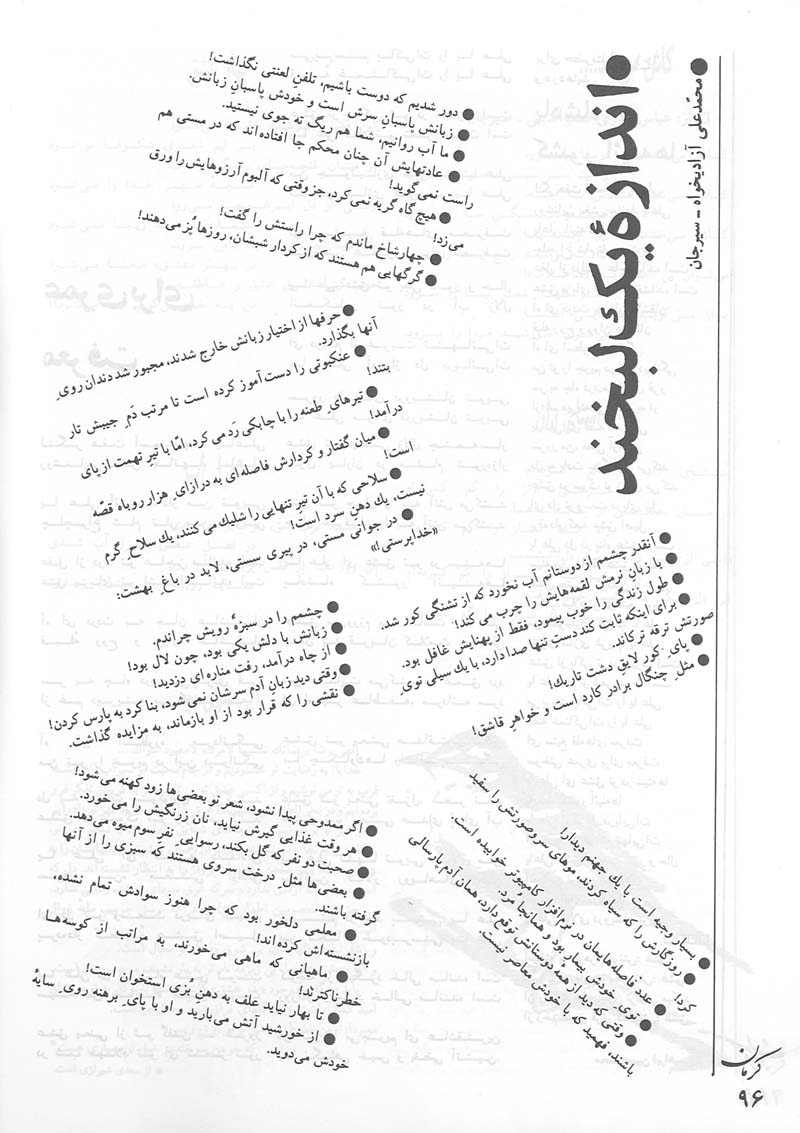 ● اندازهٔ یک لبخند
● محمّدعلی آزادیخواه ـ سیرجان
● دور شدیم که دوست باشیم، تلفنِ لعنتی نگذاشت!
● زبانش پاسبانِ سرش است و خودش پاسبانِ زبانش.
● ما آب روانیم، شما هم ریگ ته جوی نیستید.
● عادتهایش آن چنان محکم جا افتاده‌اند که در مستی هم
راست نمی‌گوید!
● هیچ گاه گریه نمی‌کرد، جز وقتی که آلبوم آرزوهایش را ورق
می‌زد!
● چهارشاخ ماندم که چرا راستش را گفت!
● گرگهایی هم هستند که از کردار شبشان، روزها پُز می‌دهند!
● حرفها از اختیار زبانش خارج شدند، مجبور شد دندان رویِ
آنها بگذارد.
● عنکبوتی را دست‌آموز کرده است تا مرتب دَمِ جیبش تار
بتند!
● تیرهایِ طعنه را با چابکی رَد می‌کرد، امّا با تیرِ تهمت از پای
درآمد!
● میان گفتار و کردارش فاصله‌ای به درازایِ هزار روباه قصّه
است!
● سلاحی که با آن تیرِ تنهایی را شلیک می‌کنند، یک سلاحِ گرم
نیست، یک دهنِ سرد است!
● در جوانی مستی، در پیری سستی، لابد در باغِ بهشت:
«خداپرستی!»
● آنقدر چشمم از دوستانم آب نخورد که از تشنگی کور شد.
● با زبانِ نرمش لقمه‌هایش را چرب می‌کند!
● طول زندگی را خوب پیمود، فقط از پهنایش غافل بود.
● برای اینکه ثابت کند دستِ تنها صدا دارد، با یک سیلی تویِ
صورتش ترقه ترکاند.
● پایِ کور لایقِ دشت تاریک!
● مثلِ چنگال برادر کارد است و خواهرِ قاشق!
● چشمم را در سبزهٔ رویش چراندم.
● زبانش با دلش یکی بود، چون لال بود!
● از چاه درآمد، رفت مناره‌ای دزدید!
● وقتی دید زبانِ آدم سرشان نمی‌شود، بنا کرد به پارس کردن!
● نقشی را که قرار بود از او بازماند، به مزایده گذاشت.
● اگر ممدوحی پیدا نشود، شعر نو بعضی‌ها زود کهنه می‌شود!
● هر وقت غذایی گیرش نیاید، نان زرنگیش را می‌خورد.
● صحبت دو نفر که گل بکند، رسواییِ نفرِ سوم میوه می‌دهد.
● بعضی‌ها مثلِ درخت سروی هستند که سبزی را از آنها
گرفته باشند.
● معلمی دلخور بود که چرا هنوز سوادش تمام نشده،
بازنشسته‌اش کرده‌اند!
● ماهیانی که ماهی می‌خورند، به مراتب از کوسه‌ها
خطرناکترند!
● تا بهار نیاید علف به دهنِ بزی استخوان است!
● از خورشید آتش می‌بارید و او با پایِ برهنه رویِ سایهٔ
خودش می‌دوید.
● بسیار وجیه است با یک جهنم دیدار!
● روزگارش را که سیاه کردند، موهای سر و صورتش را سفید
کرد!
● عدد فاصله‌هایمان در نرم‌افزار کامپیوتر خوابیده است.
● تویِ خودش بیمار بود و همانجا مُرد.
● وقتی که دید از همه دوستانش توقع دارد، همان آدم پارسالی
باشند، فهمید که با خودش معاصر نیست.
کرمان
۹۶